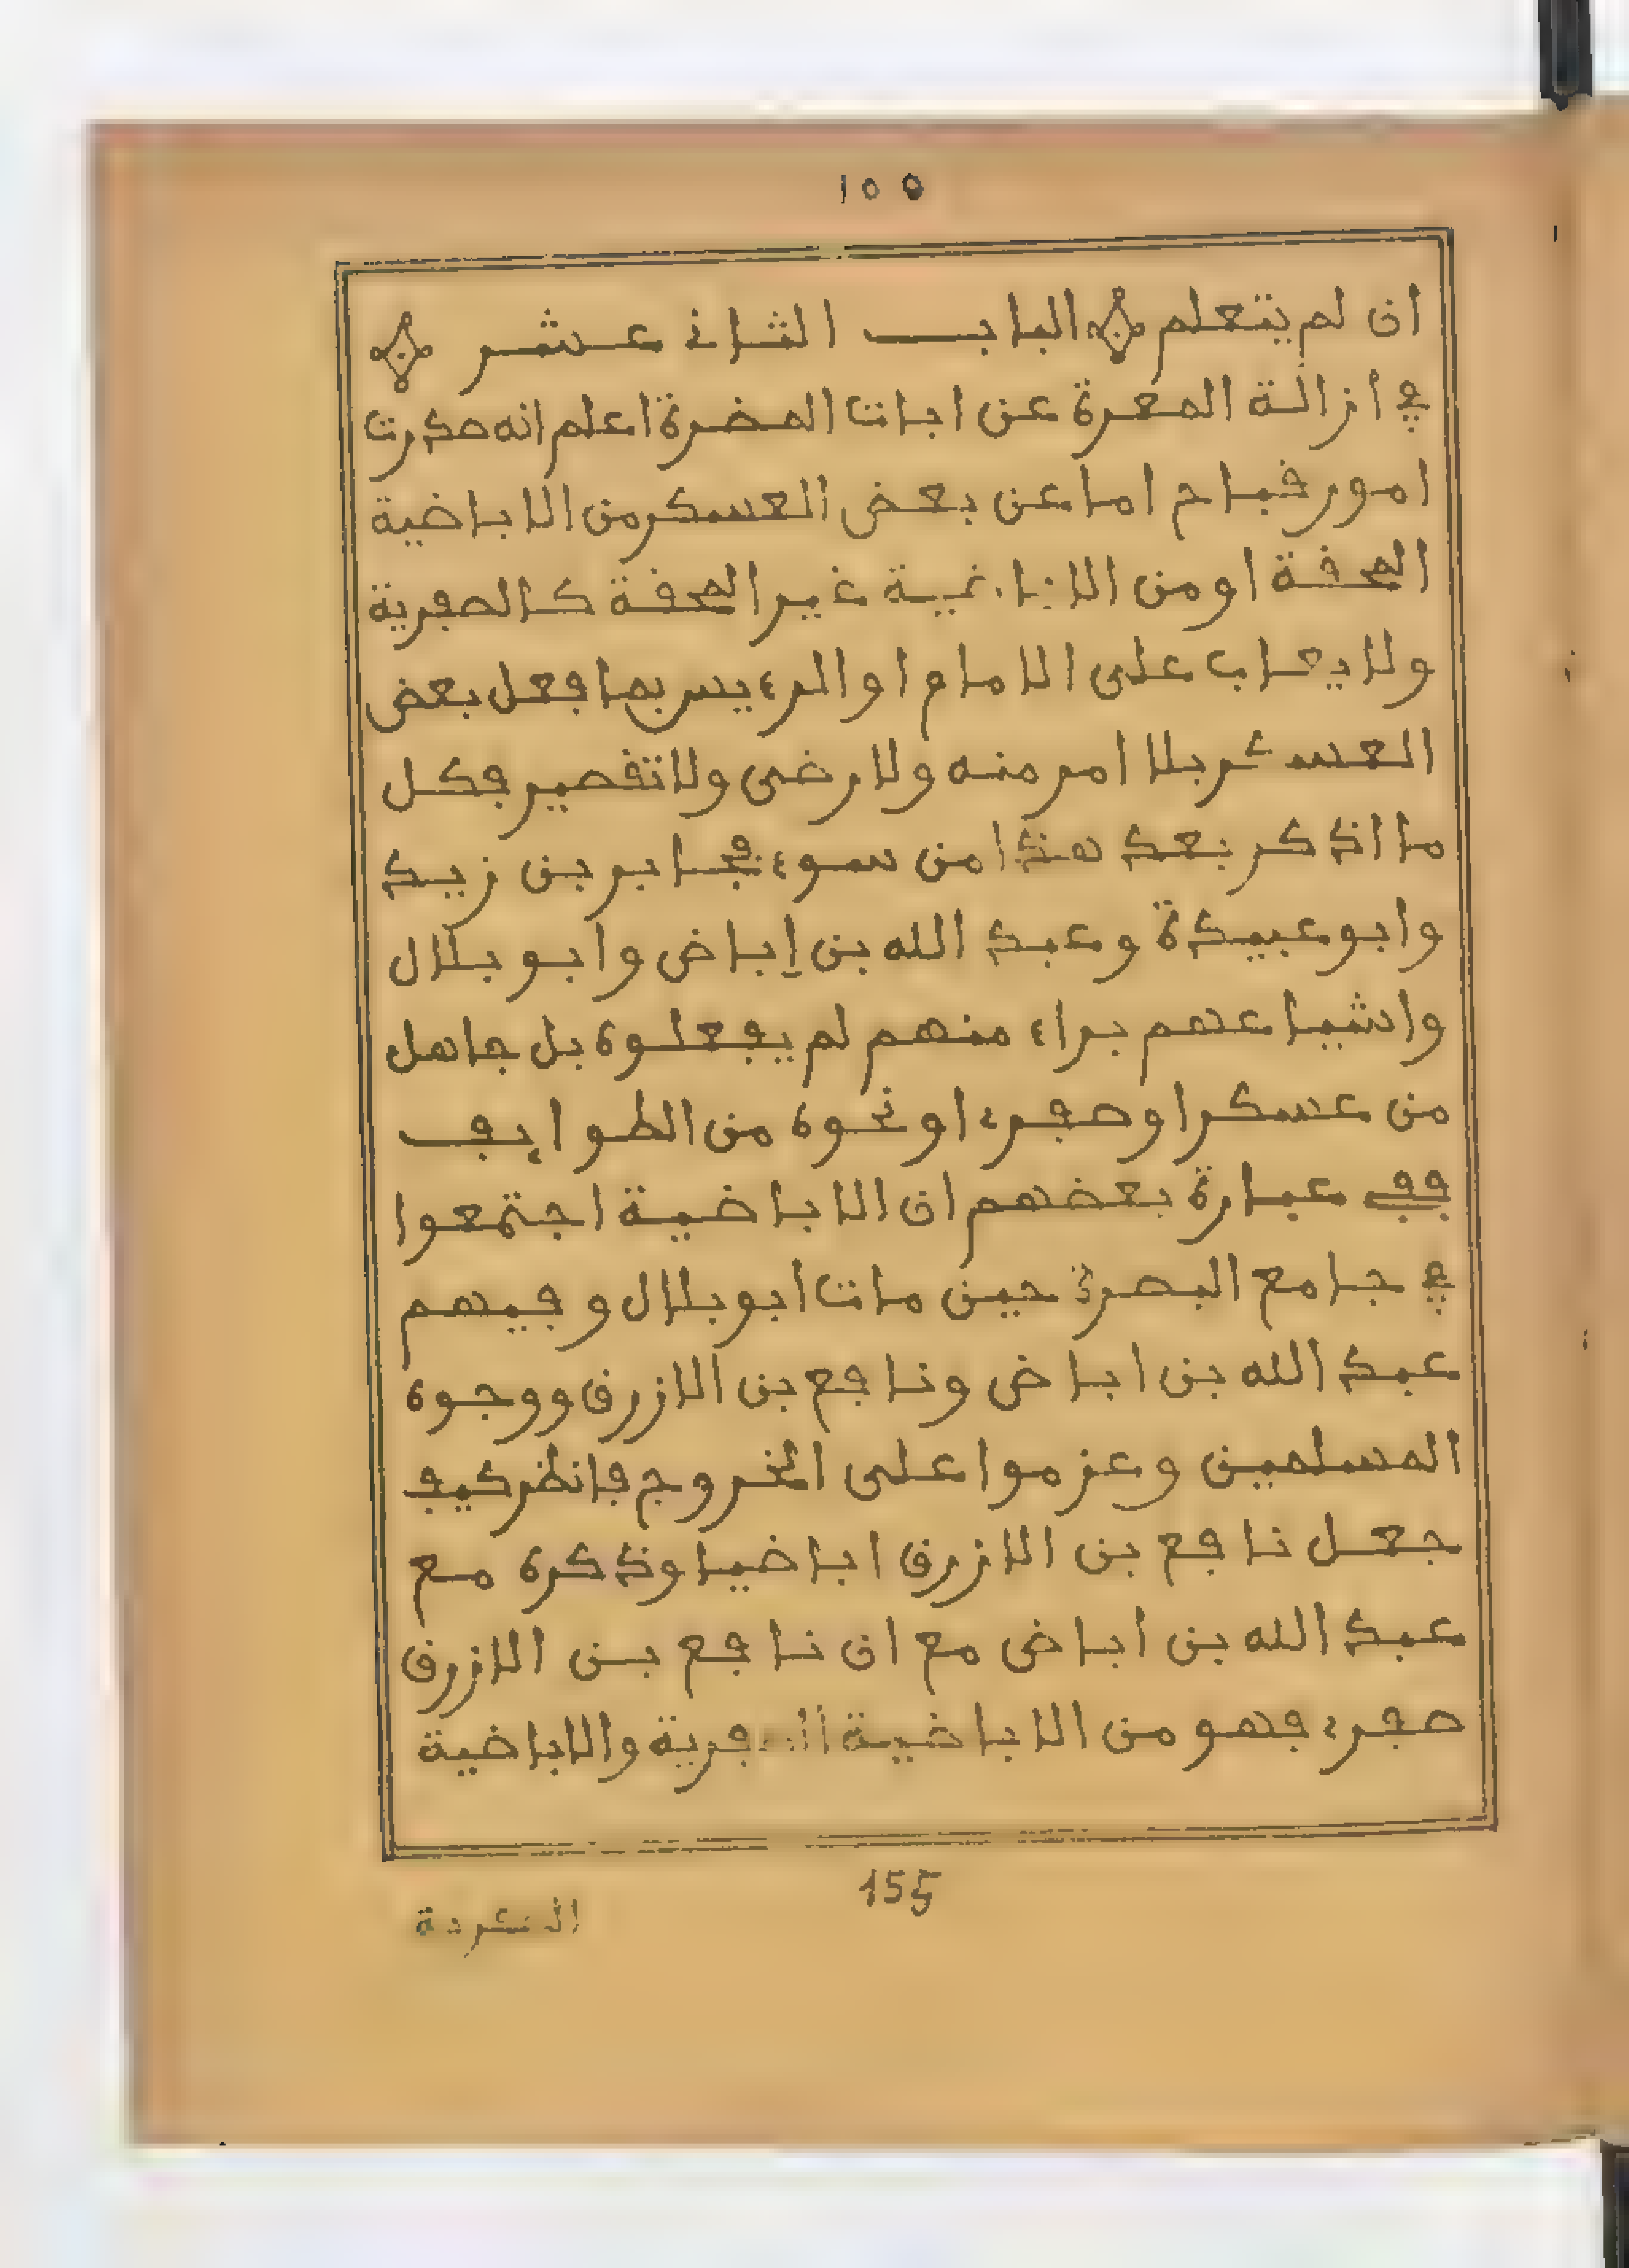 ١٥٥
ان لم يتعلم الباب الثاني عشر
في ازالة المعرة عن اباة المضرة اعلم انه صدرت
امور قباح اما عن بعض العسكر من الاباضية
المحقة او من الاباضية غير المحقة كالصفرية
ولا يعاب على الامام او الرءيس بما فعل بعض
العسكر بلا امر منه ولا رضى ولا تقصير فكل
ما اذكر بعد هذا من سوء فجابر بن زيد
وابو عبيدة وعبد الله بن إباض وابو بلال
واشياعهم براء منهم لم يفعلوه بل جاهل
من عسكر او صفرى او نحوه من الطوايف
ففي عبارة بعضهم ان الاباضية اجتمعوا
في جامع البصرة حين مات ابو بلال وفيهم
عبد الله بن اباض ونافع بن الازرق ووجوه
المسلمين وعزموا على الخروج فانظر كيف
جعل نافع بن الازرق اباضيا وذكره مع
عبد الله بن اباض مع ان نافع بن الازرق
صفرى فهو من الاباضية الصفرية والاباضية
155